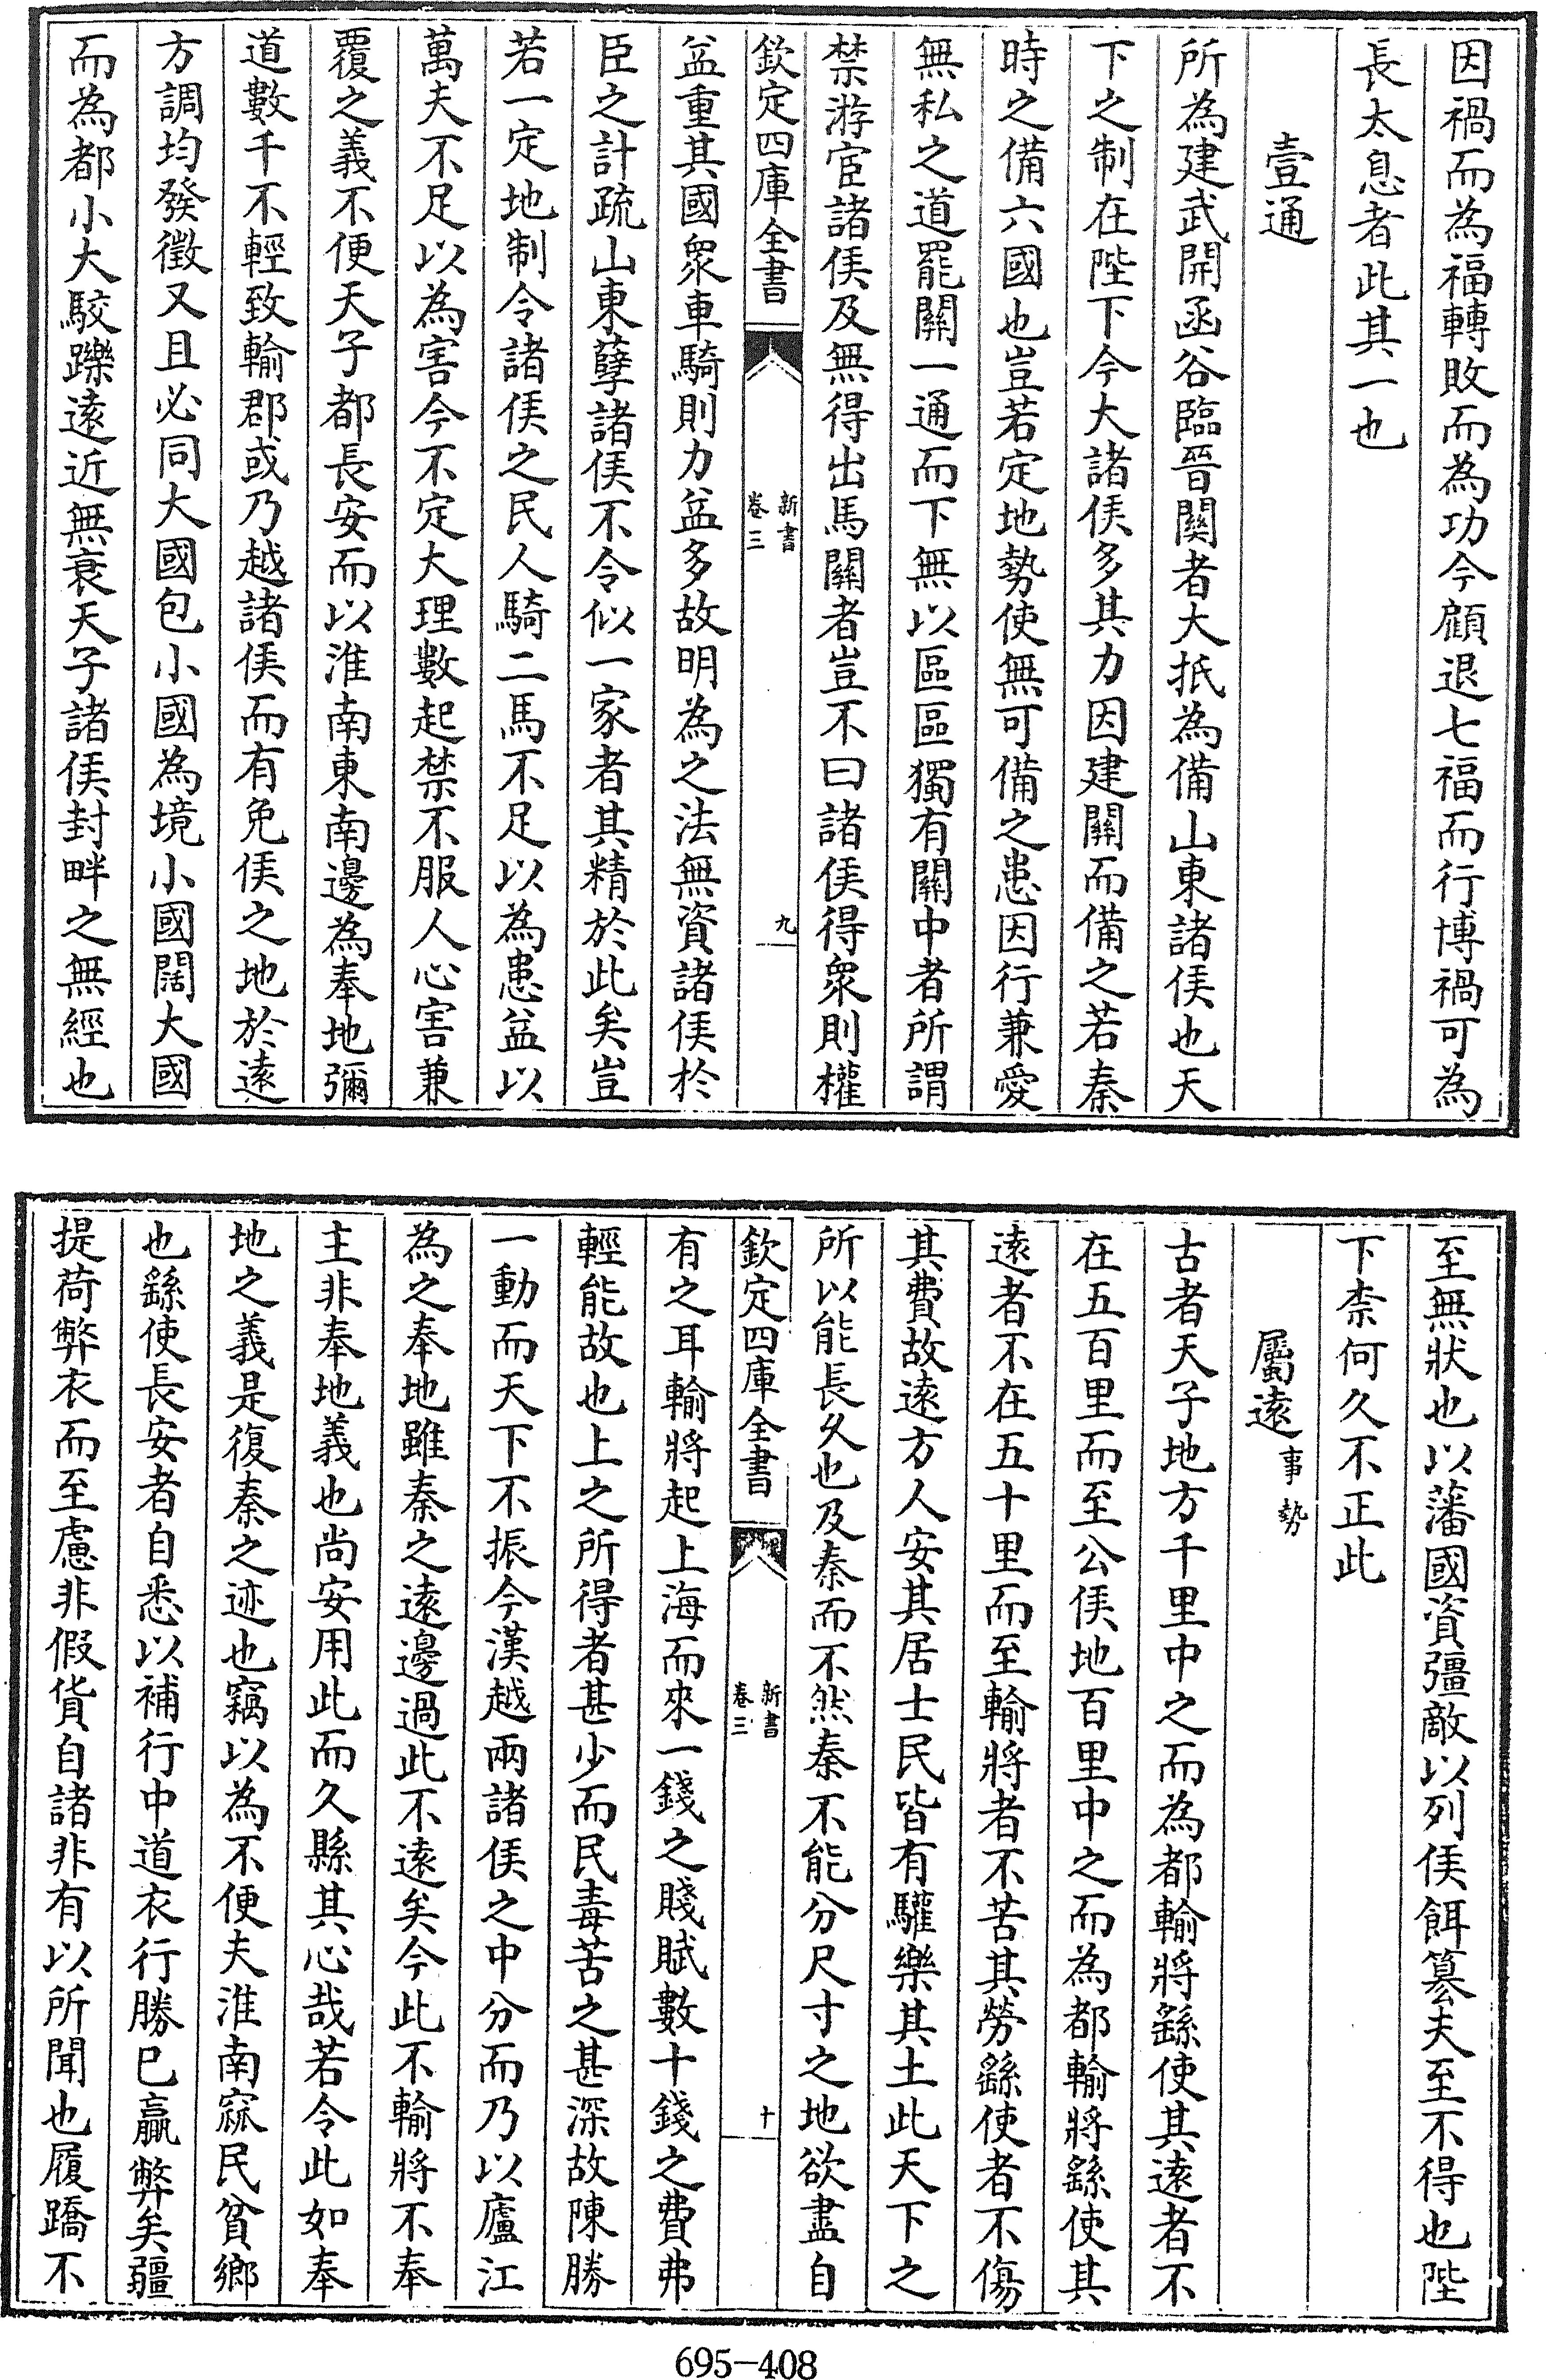 因禍而為福轉敗而為功今顧退七福而行博禍可為
長太息者此其一也
壹通
所為建武開函谷臨晉闗者大抵為備山東諸侯也天
下之制在陛下今大諸侯多其力因建關而備之若秦
時之備六國也豈若定地勢使無可備之患因行兼愛
無私之道罷關一通而下無以區區獨有關中者所謂
禁游宦諸侯及無得出馬關者豈不曰諸侯得衆則權
欽定四庫全書
新書
卷三
九
益重其國衆車騎則力益多故明為之法無資諸侯於
臣之計疏山東孽諸侯不令似一家者其精於此矣豈
若一定地制令諸侯之民人騎二馬不足以為患益以
萬夫不足以為害今不定大理數起禁不服人心害兼
覆之義不便天子都長安而以淮南東南邊為奉地彌
道數千不輕致輸郡或乃越諸侯而有免侯之地於遠
方調均發徵又且必同大國包小國為境小國闊大國
而為都小大駮躒遠近無衰天子諸侯封畔之無經也
至無狀也以藩國資彊敵以列侯餌簒夫至不得也陛
下柰何久不正此
屬遠事勢
古者天子地方千里中之而為都輸將繇使其遠者不
在五百里而至公侯地百里中之而為都輸將繇使其
遠者不在五十里而至輸將者不苦其勞繇使者不傷
其費故遠方人安其居士民皆有驩樂其土此天下之
所以能長久也及秦而不然秦不能分尺寸之地欲盡自
欽定四庫全書
新書
卷三
十
有之耳輸將起上海而來一錢之賤賦數十錢之費弗
輕能故也上之所得者甚少而民毒苦之甚深故陳勝
一動而天下不振今漢越兩諸侯之中分而乃以廬江
為之奉地雖秦之遠邊過此不遠矣今此不輸將不奉
主非奉地義也尚安用此而久縣其心哉若令此如奉
地之義是復秦之迹也竊以為不便夫淮南窳民貧鄉
也繇使長安者自悉以補行中道衣行勝已羸弊矣疆
提荷弊衣而至慮非假貨自諸非有以所聞也履蹻不
695-408